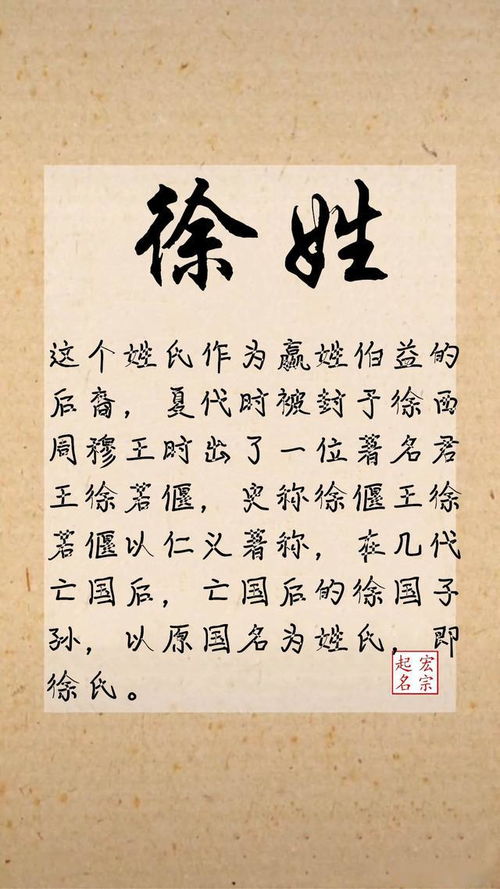 徐姓
这个姓氏作为嬴姓伯益的
后裔，夏代时被封于徐西
周穆王时出了一位著名君
王徐若偃，史称徐偃王徐
若偃以仁义著称，在几代
亡国后，亡国后的徐国子
孙，以原国名为姓氏，即
徐氏。
宏宗
起名